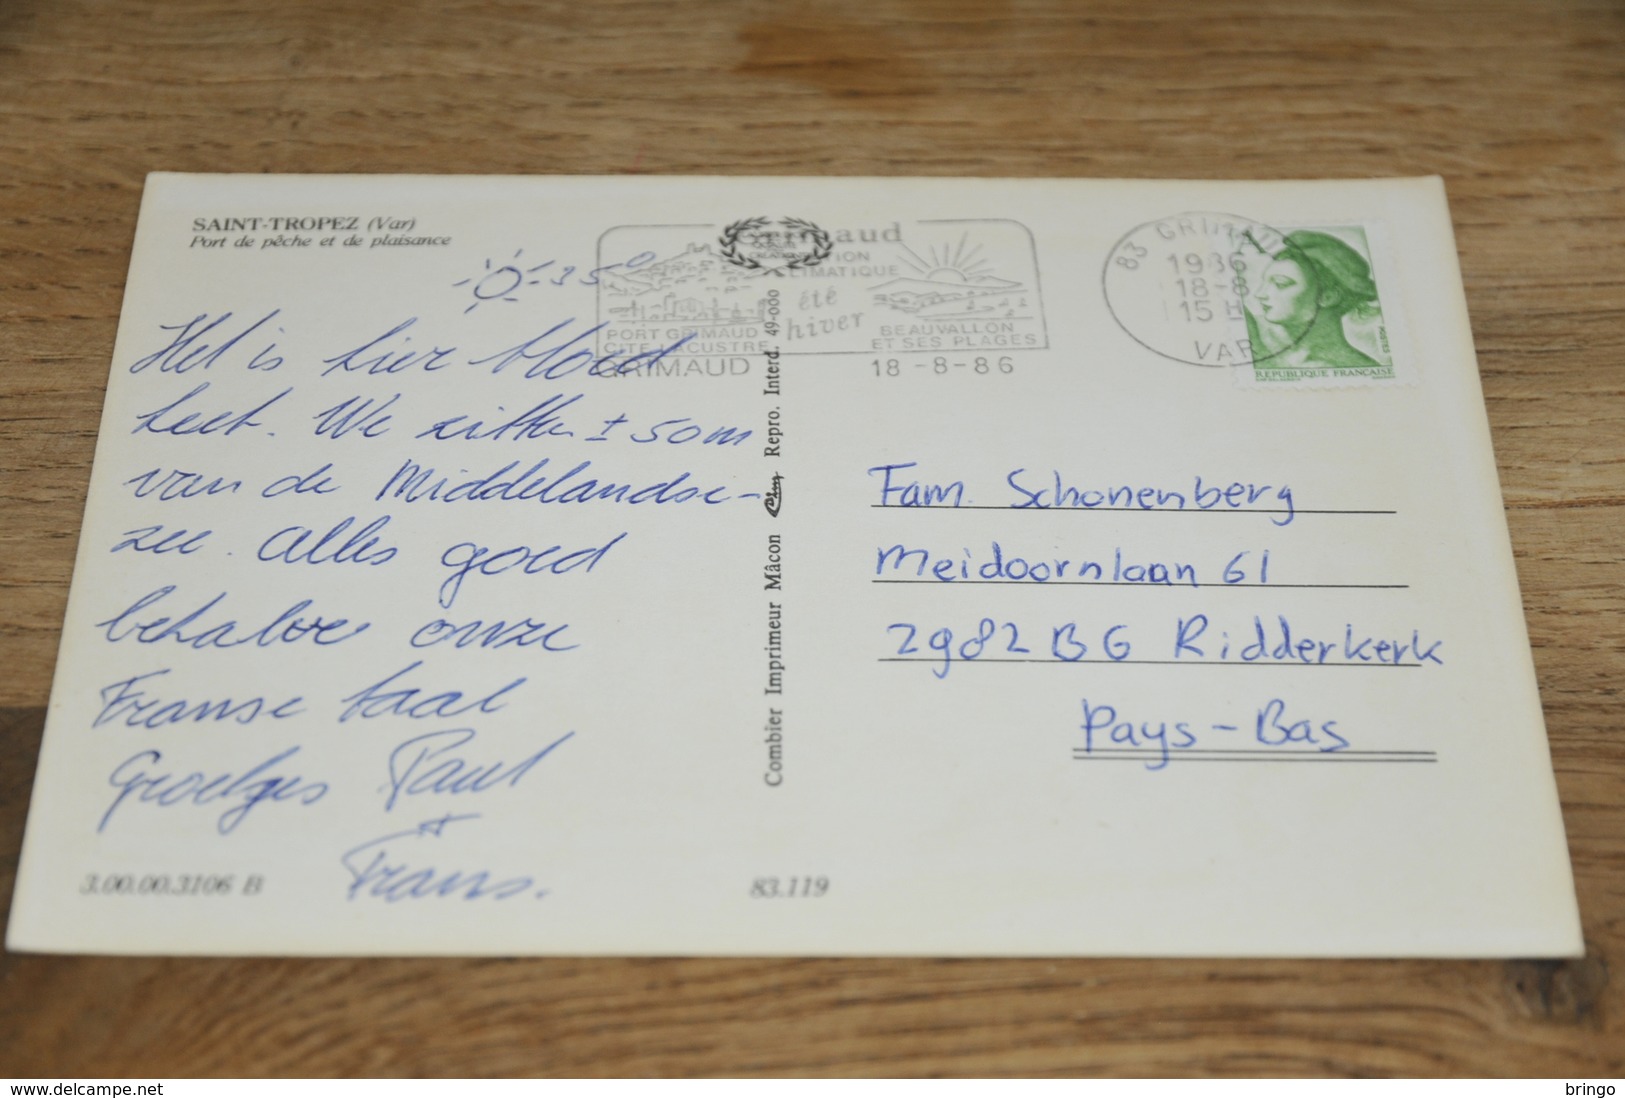 SAINT-TROPEZ (Var)
Port de pêche et de plaisance
35°
Het is hier bloed
heet. We zitten ± 50 m
van de Middelandse-
zee. Alles goed
behalve onze
Franse taal
Groetjes Paul
+
Frans.
3.00.00.3106 B
83.119
Combier Imprimeur Mâcon
Repro. Interd. 49-000
Grimaud
CLIMATIQUE
été
hiver
PORT GRIMAUD
CITE LACUSTRE
BEAUVALLON
ET SES PLAGES
GRIMAUD
18 -8-86
83 GRIMAUD
1986
18-8
15 H
VAR
REPUBLIQUE FRANCAISE
Fam. Schonenberg
Meidoornlaan 61
2982 BG Ridderkerk
Pays-Bas
www.delcampe.net
bringo